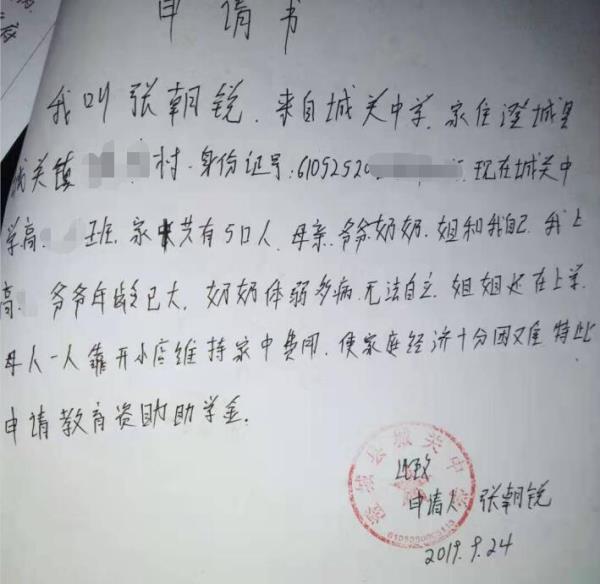 申请书
我叫张朝锐、来自城关中学、家住澄城县
城关镇 村、身份证号:61052520 、现在城关中
学高 班、家共有5口人、母亲、爷爷、奶奶、姐和我自己、我上
高 爷爷年龄已大、奶奶体弱多病、无法自立、姐姐还在上学、
母人一人靠开小店维持家中费用、使家庭经济十分困难 特此
申请教育资助助学金.
澄城县城关中学
此致
申请人 张朝锐
2019.9.24